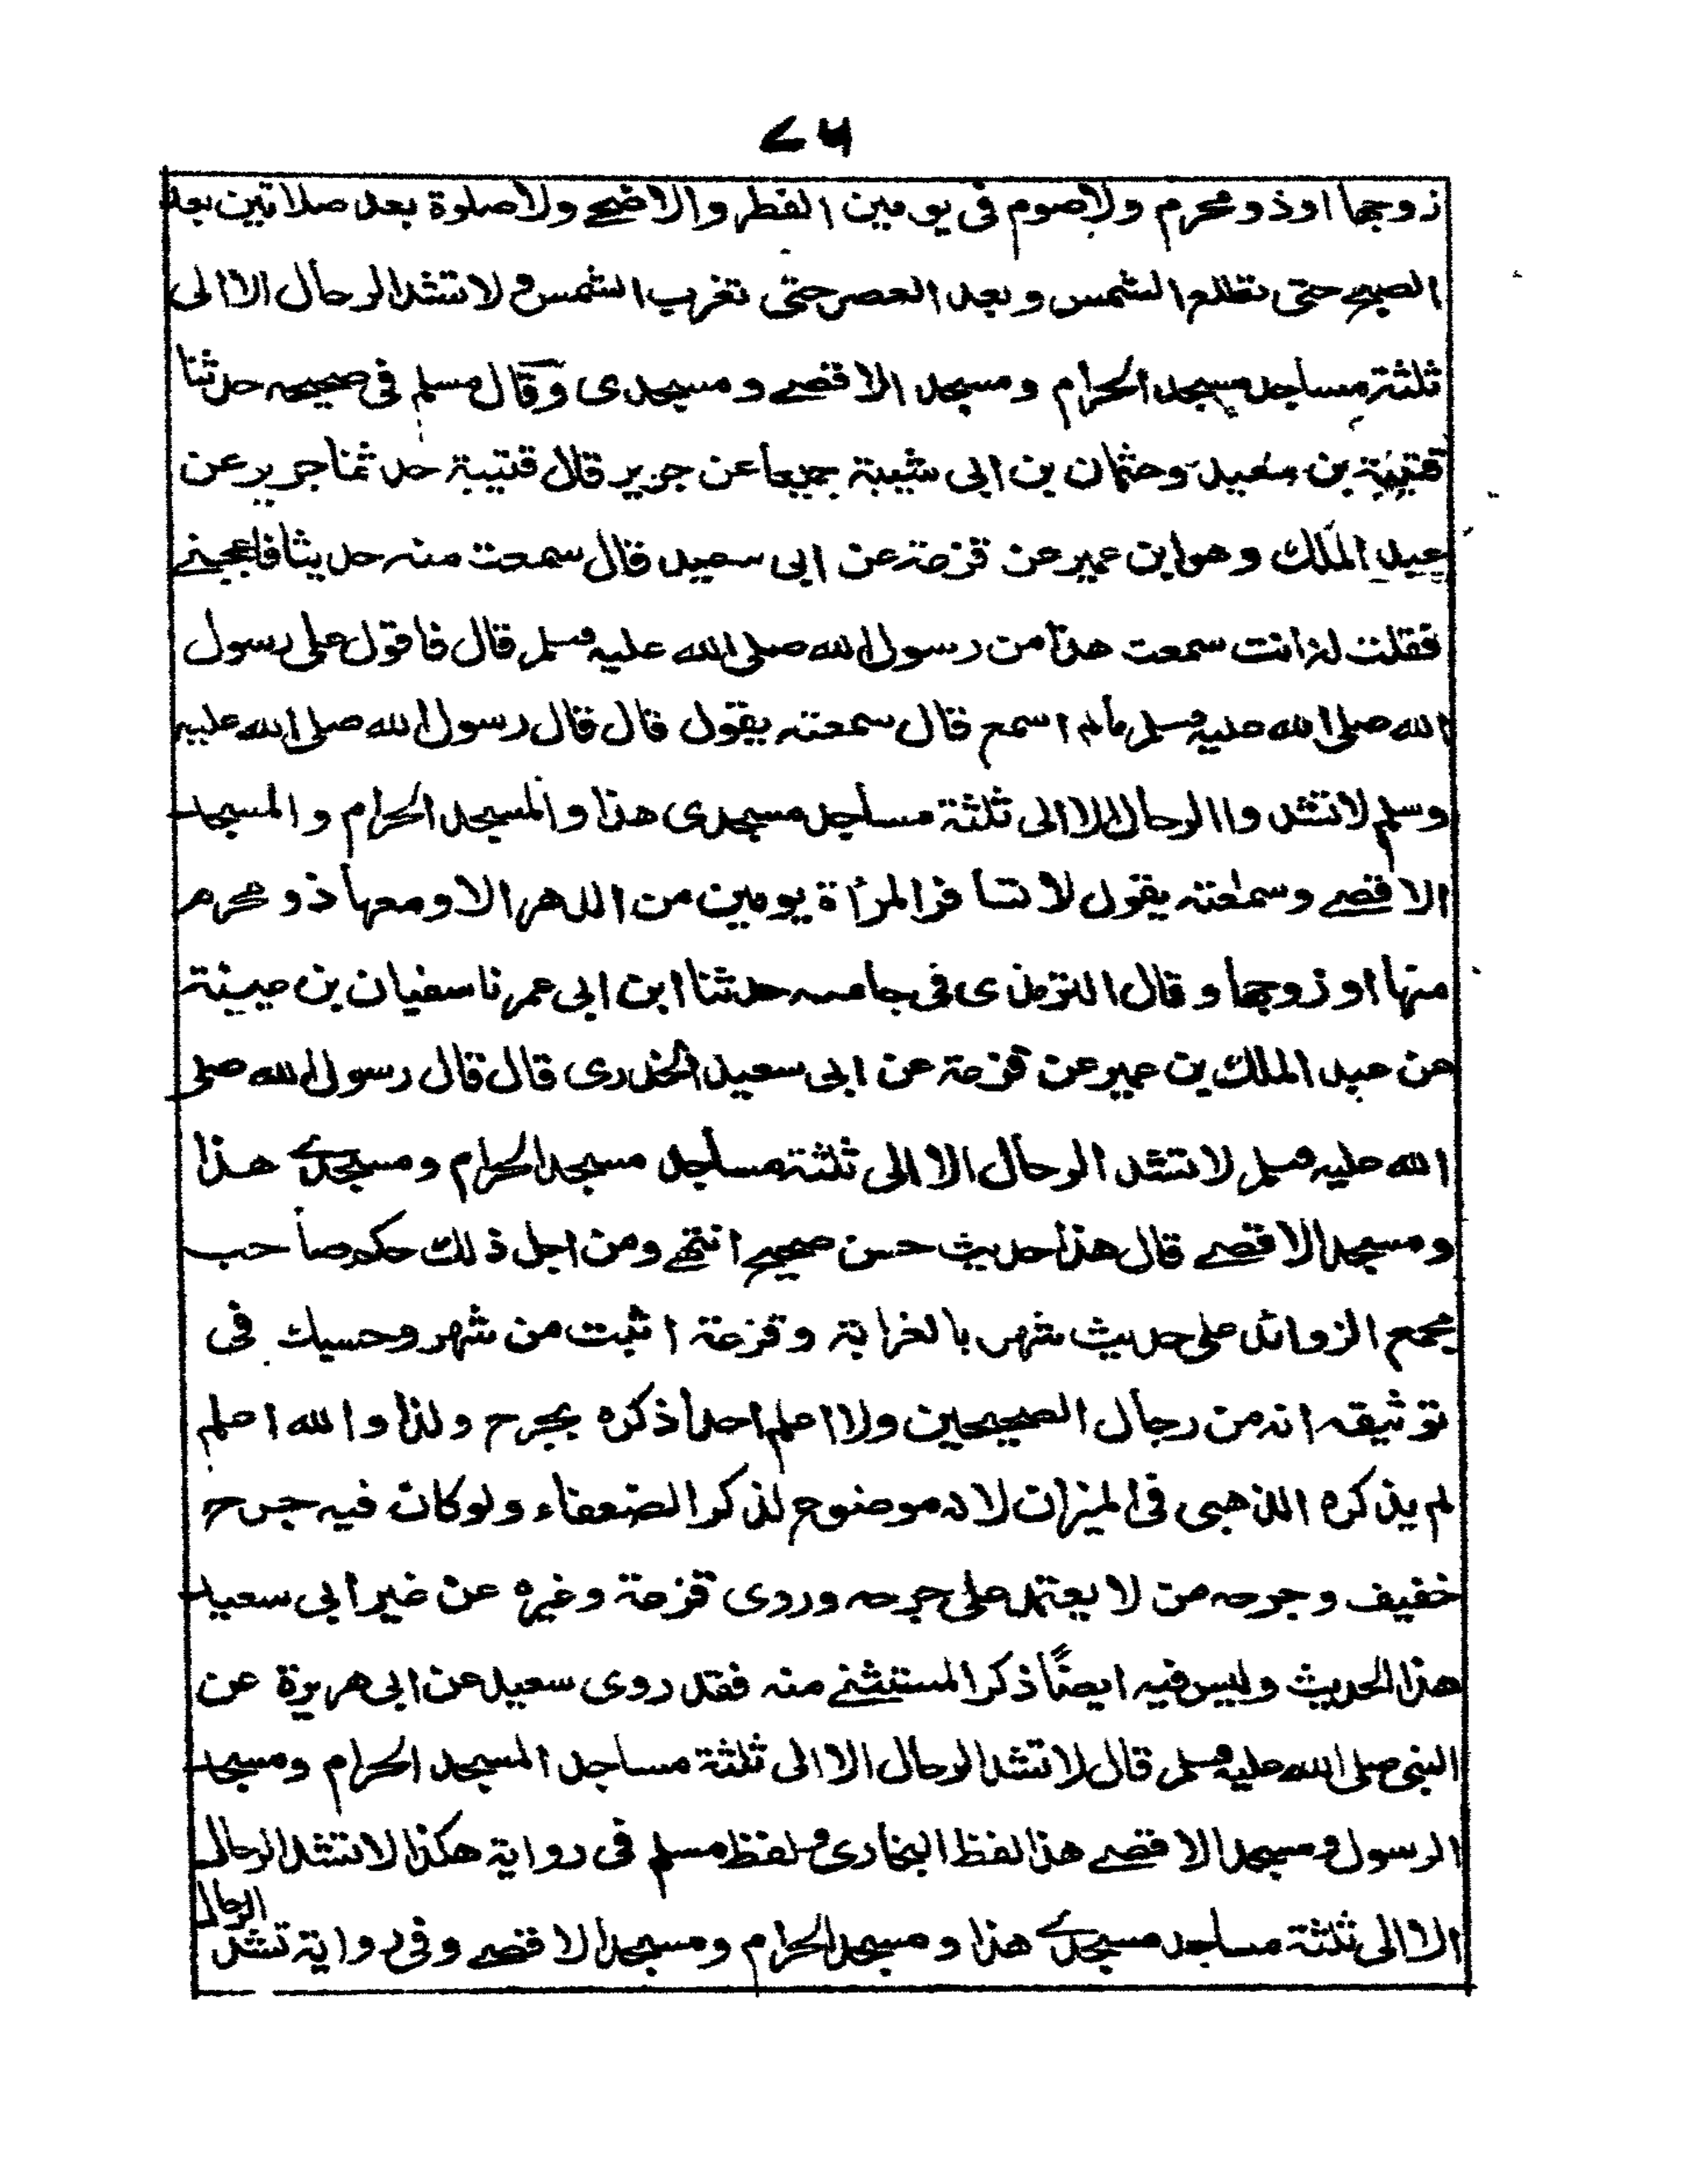 ۷۶
زوجها اوذو محرم ولاصوم فى يومين الفطر والاضحے ولاصلوة بعد صلاتين بعد
الصبح حتى تطلع الشمس وبعد العصر حتى تغرب الشمس ولا تشد الرحال الا الى
ثلثة مساجد مسجد الحرام ومسجد الاقصے ومسجدى وقال مسلم فى صحيحه حدثنا
قتيبة بن سعيد وعثمان بن ابى شيبة جميعا عن جرير قال قتيبة حدثنا جرير عن
عبد الملك وهو ابن عمير عن قزعة عن ابى سعيد قال سمعت منه حديثا فاعجبنے
فقلت له انت سمعت هذا من رسول الله صلى الله عليه وسلم قال فاقول على رسول
الله صلى الله عليه وسلم مالم اسمع قال سمعته يقول قال قال رسول الله صلى الله عليه
وسلم لا تشد وا الرحال الا الى ثلثة مساجد مسجدى هذا والمسجد الحرام والمسجد
الاقصے وسمعته يقول لا تسافر المرأة يومين من الدهر الا ومعها ذو محرم
منها او زوجها وقال الترمذى فى جامعه حدثنا ابن ابى عمر نا سفيان بن عيينة
عن عبد الملك بن عمير عن قزعة عن ابى سعيد الخدرى قال قال رسول الله صلى
الله عليه وسلم لا تشد الرحال الا الى ثلثة مساجد مسجد الحرام ومسجدے هذا
ومسجد الاقصے قال هذا حديث حسن صحيح انتهے ومن اجل ذلك حكم صاحب
مجمع الزوائد على حديث شهر بالغرابة وقزعة اثبت من شهر وحسبك فى
توثيقه انه من رجال الصحيحين ولا اعلم احدا ذكره بجرح ولذا والله اعلم
لم يذكره الذهبى فى الميزان لانه موضوع لذكر الضعفاء ولو كان فيه جرح
خفيف وجرحه من لا يعتمد على جرحه وروى قزعة وغيره عن غير ابى سعيد
هذا الحديث وليس فيه ايضًا ذكر المستثنے منه فقد روى سعيد عن ابى هريرة عن
النبى صلى الله عليه وسلم قال لا تشد الرحال الا الى ثلثة مساجد المسجد الحرام ومسجد
الرسول ومسجد الاقصے هذا لفظ البخارى ولفظ مسلم فى رواية هكذا لا تشد الرحال
الا الى ثلثة مساجد مسجدے هذا ومسجد الحرام ومسجد الاقصے وفى رواية تشد الرحال